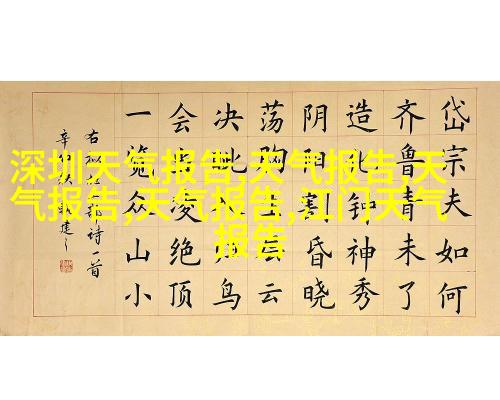 深圳天气报告,天气报告,天
气报告,天气报告,江门天气
报告
岱宗夫如何
齐鲁青未了
造化钟神秀
阴阳割昏晓
荡胸生层云
决眦入归鸟
会当凌绝顶
一览众山小
右 诗一首